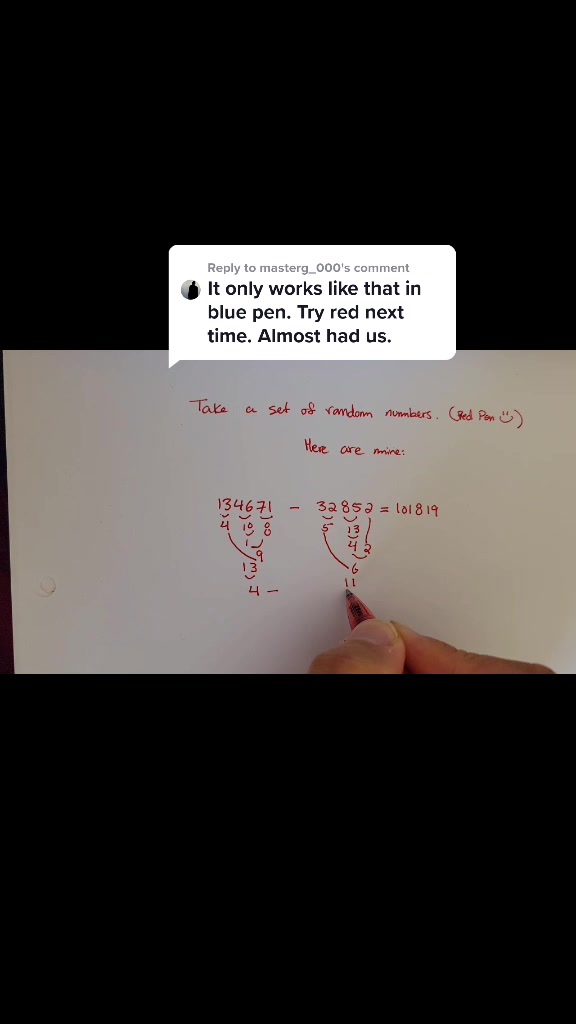 Reply to masterg_000's comment
It only works like that in
blue pen. Try red next
time. Almost had us.
Take a set of random numbers. (Red Pen)
Here are mine:
134671 - 32852 = 101819
4 10 8 5 13
1 4 2
9
13 6
4 - 11